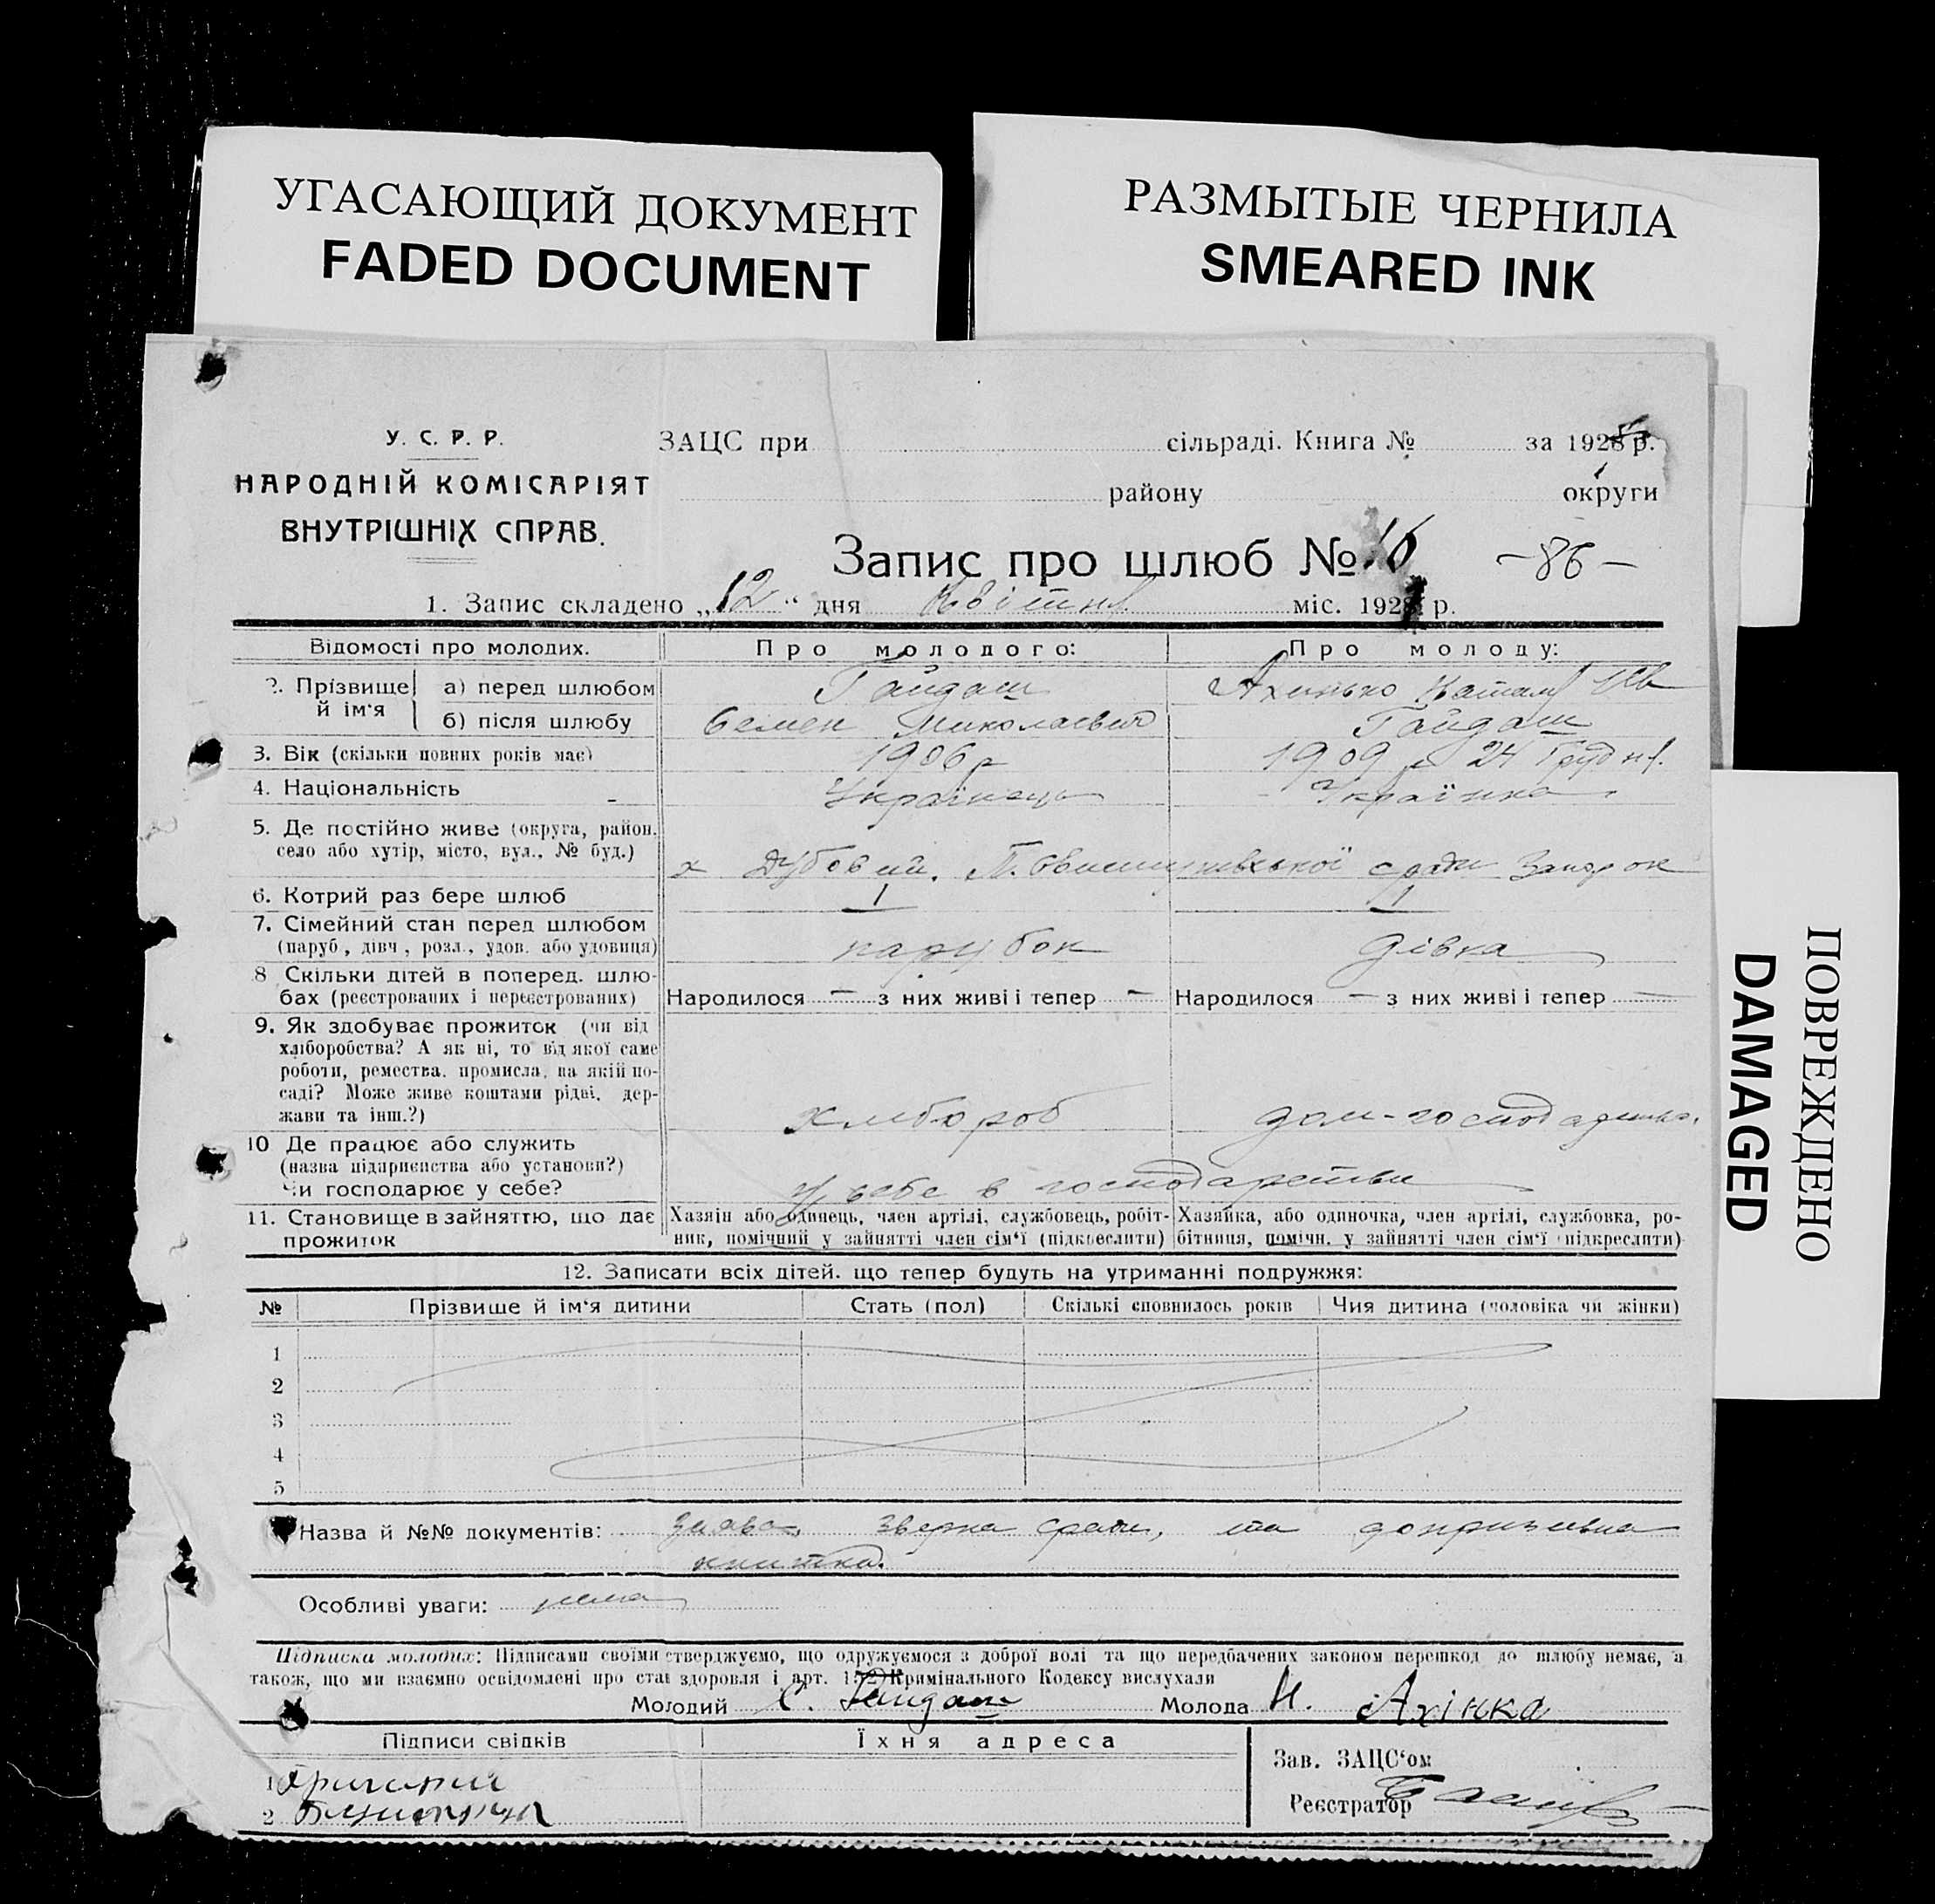 УГАСАЮЩИЙ ДОКУМЕНТ
FADED DOCUMENT
РАЗМЫТЫЕ ЧЕРНИЛА
SMEARED INK
У. С. Р. Р.
НАРОДНІЙ КОМІСАРІЯТ
ВНУТРІШНІХ СПРАВ.
ЗАЦС при сільраді. Книга № за 192 р.
району округи
Запис про шлюб № 16 -86-
1. Запис складено „12“ дня Квітня міс. 192 р.
Відомості про молодих. Про молодого: Про молоду:
2. Прізвище й ім‘я а) перед шлюбом Гайдаш
б) після шлюбу Семен Миколаєвич Гайдаш
3. Вік (скільки повних років має) 1906 р 1909 р 24 Грудня.
4. Національність Українець Українка
5. Де постійно живе (округа, район, село або хутір, місто, вул., № буд.) х Дубовий. сради Запор ок
6. Котрий раз бере шлюб 1 1
7. Сімейний стан перед шлюбом (паруб, дівч, розл., удов. або удовиця) парубок дівка
8 Скільки дітей в поперед. шлюбах (реєстрованих і нереєстрованих) Народилося — з них живі і тепер — Народилося — з них живі і тепер —
9. Як здобуває прожиток (чи від
хліборобства? А як ні, то від якої саме
роботи, ремества, промисла, на якій по-
саді? Може живе коштами рідні, дер-
жави та інш.?) хлібороб дом-господарка.
10 Де працює або служить
(назва підприємства або установи?)
Чи господарює у себе? У себе в господарстви
11. Становище в зайняттю, що дає прожиток
Хазяін або одинець, член артілі, службовець, робіт-
ник, помічний у зайнятті член сім‘ї (підкреслити)
Хазяйка, або одиночка, член артілі, службовка, ро-
бітниця, помічн. у зайнятті член сім‘ї (підкреслити)
12. Записати всіх дітей, що тепер будуть на утриманні подружжя:
№ Прізвише й ім‘я дитини Стать (пол) Скількі сповнилось років Чия дитина (чоловіка чи жінки)
1
2
3
4
5
Назва й №№ документів: Заява, сради, та допризивна
книжка.
Особливі уваги: нема
Підписка молодих: Підписами своїми стверджуємо, що одружуємося з доброї волі та що передбачених законом перешкод до шлюбу немає, а
також, що ми взаємно освідомлені про стан здоровля і арт. Кримінального Кодексу вислухали
Молодий С. Гайдаш Молода Н. Ахінка
Підписи свідків Їхня адреса
Зав. ЗАЦС‘ом
1
2
Реєстратор
ПОВРЕЖДЕНО
DAMAGED